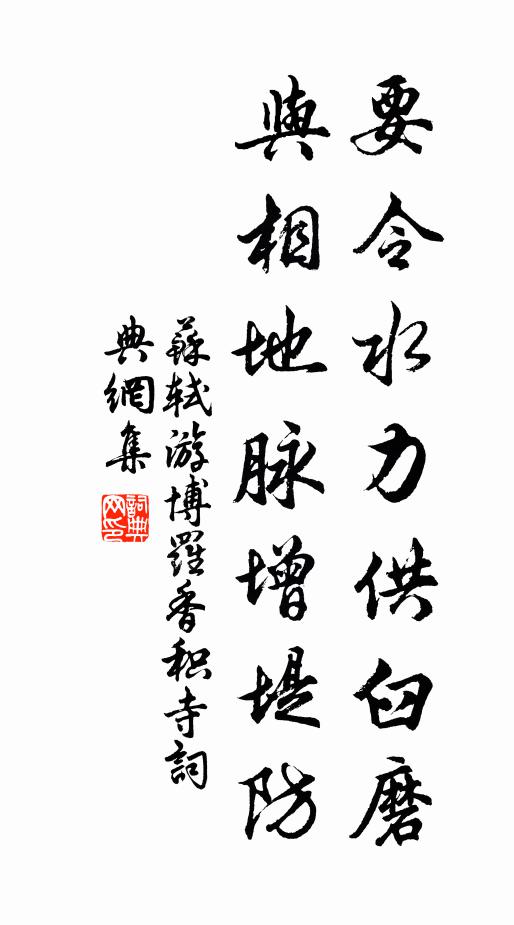 要令水力供臼磨
與相地脉增堤防
蘇軾游博羅香积寺詞
典網集
詞典网印